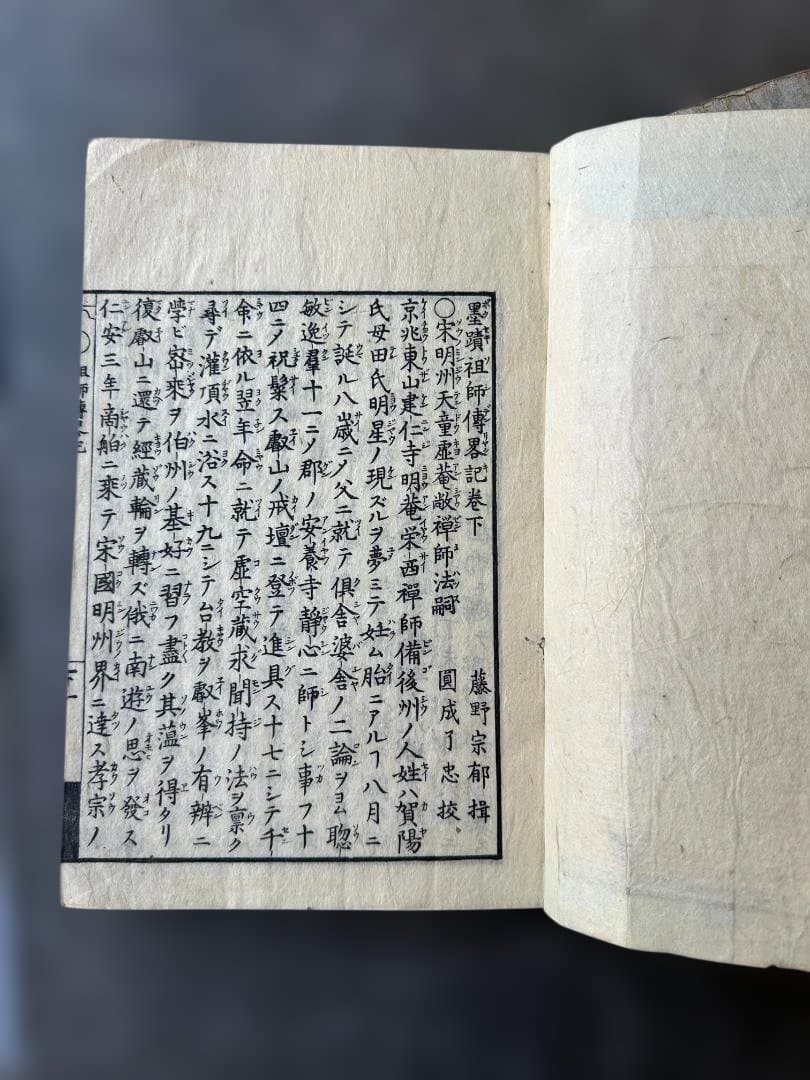 墨蹟祖師傳畧記卷下 藤野宗郁揖
〇宋明州天童虚菴敞禪師法嗣 圓成了忠挍
京兆東山建仁寺明菴栄西禪師備後州ノ人姓ハ賀陽
氏母田氏明星ノ現ズルヲ夢ミテ妊ム胎ニアルヿ八月ニ
シテ誕ル八歳ニメ父ニ就テ俱舎婆舎ノ二論ヲヨム聡
敏逸羣十一ニメ郡ノ安養寺静心ニ師トシ事フ十
四ニメ祝髪ス叡山ノ戒壇ニ登テ進具ス十七ニシテ千
命ニ依ル翌年命ニ就テ虚空蔵求聞持ノ法ヲ禀ク
尋デ灌頂水ニ浴ス十九ニシテ台教ヲ叡峯ノ有辨ニ
學ビ密乘ヲ伯州ノ基好ニ習フ盡ク其薀ヲ得タリ
復叡山ニ還テ經蔵輪ヲ轉ズ俄ニ南遊ノ思ヲ發ス
仁安三年商舶ニ乘テ宋國明州界ニ達ス孝宗ノ
祖師傳